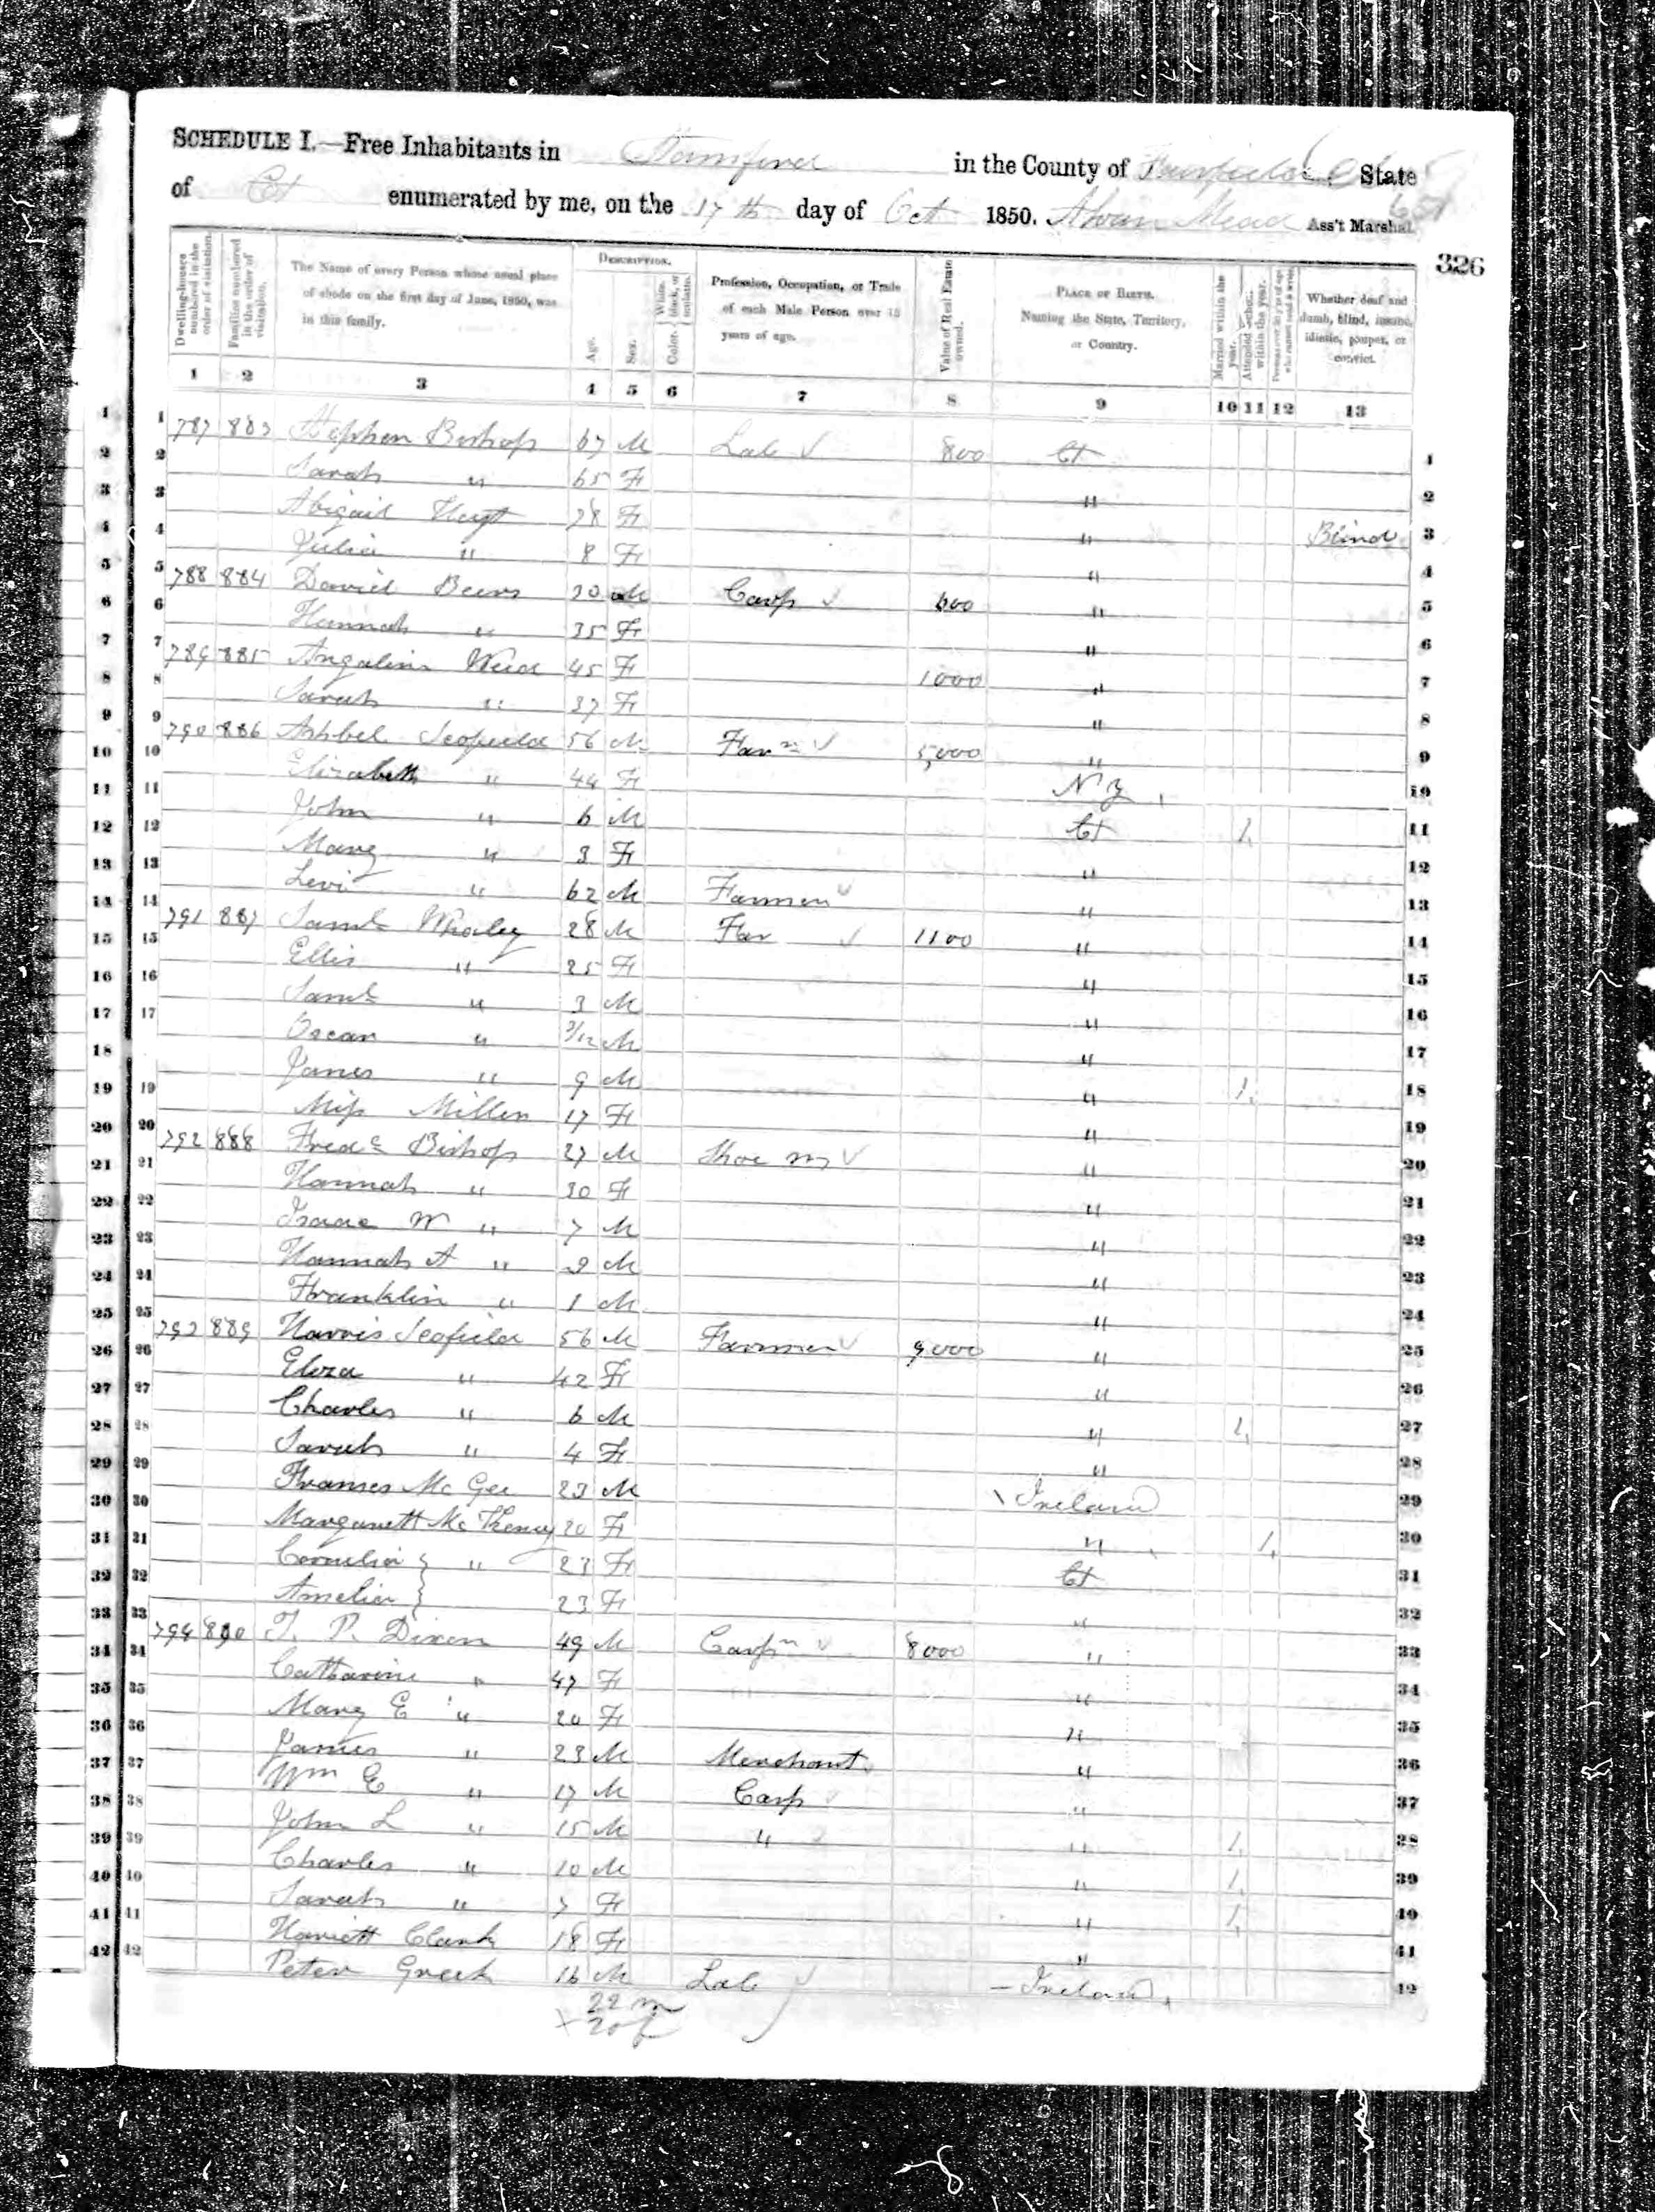 SCHEDULE I.—Free Inhabitants in Stamford in the County of Fairfield State
of Ct enumerated by me, on the 17th day of Oct 1850. Alvan Mead Ass't Marshal.
326
Dwelling-houses numbered in the order of visitation.
Families numbered in the order of visitation.
The Name of every Person whose usual place of abode on the first day of June, 1850, was in this family.
DESCRIPTION.
Age.
Sex.
Color. White, black, or mulatto.
Profession, Occupation, or Trade of each Male Person over 15 years of age.
Value of Real Estate owned.
PLACE OF BIRTH. Naming the State, Territory, or Country.
Married within the year.
Attended School within the year.
Persons over 20 y'rs of age who cannot read & write.
Whether deaf and dumb, blind, insane, idiotic, pauper, or convict.
1 2 3 4 5 6 7 8 9 10 11 12 13
1 787 883 Stephen Bishop 67 M Lab ✓ 800 Ct 1
2 Sarah " 65 F " 2
3 Abigail Hoyt 78 F " Blind 3
4 Julia " 8 F " 4
5 788 884 David Beers 30 M Carp ✓ 600 " 5
6 Hannah " 35 F " 6
7 789 885 Angaline Weed 45 F 1000 " 7
8 Sarah " 37 F " 8
9 790 886 Ashbel Scofield 56 M Farm ✓ 5,000 " 9
10 Elizabeth " 44 F N Y 10
11 John " 6 M Ct 1 11
12 Mary " 3 F " 12
13 Levi " 62 M Farmer ✓ " 13
14 791 887 Saml Whaley 28 M Far ✓ 1100 " 14
15 Ellis " 25 F " 15
16 Saml " 3 M " 16
17 Oscar " 3/12 M " 17
18 James " 9 M " 1 18
19 Miss Miller 17 F " 19
20 792 888 Fredc Bishop 27 M Shoe m ✓ " 20
21 Hannah " 30 F " 21
22 Isaac W " 7 M " 22
23 Hannah A " 2 M " 23
24 Franklin " 1 M " 24
25 793 889 Harris Scofield 56 M Farmer ✓ 9,000 " 25
26 Eliza " 42 F " 26
27 Charles " 6 M " 1 27
28 Sarah " 4 F " 28
29 Frances Mc Gee 23 M Ireland 29
30 Margarett Mc 20 F " 1 30
31 Cornelia } " 23 F Ct 31
32 Amelia } 23 F " 32
33 794 890 T. P. Dixon 49 M Carpn ✓ 8000 " 33
34 Catharine " 47 F " 34
35 Mary E " 20 F " 35
36 James " 23 M Merchant " 36
37 Wm E " 17 M Carp ✓ " 37
38 John L " 15 M " ✓ " 1 38
39 Charles " 10 M " 1 39
40 Sarah " 7 F " 1 40
41 Harriett Clark 18 F " 41
42 Peter Greek 16 M Lab ✓ Ireland 42
22 m
20 f